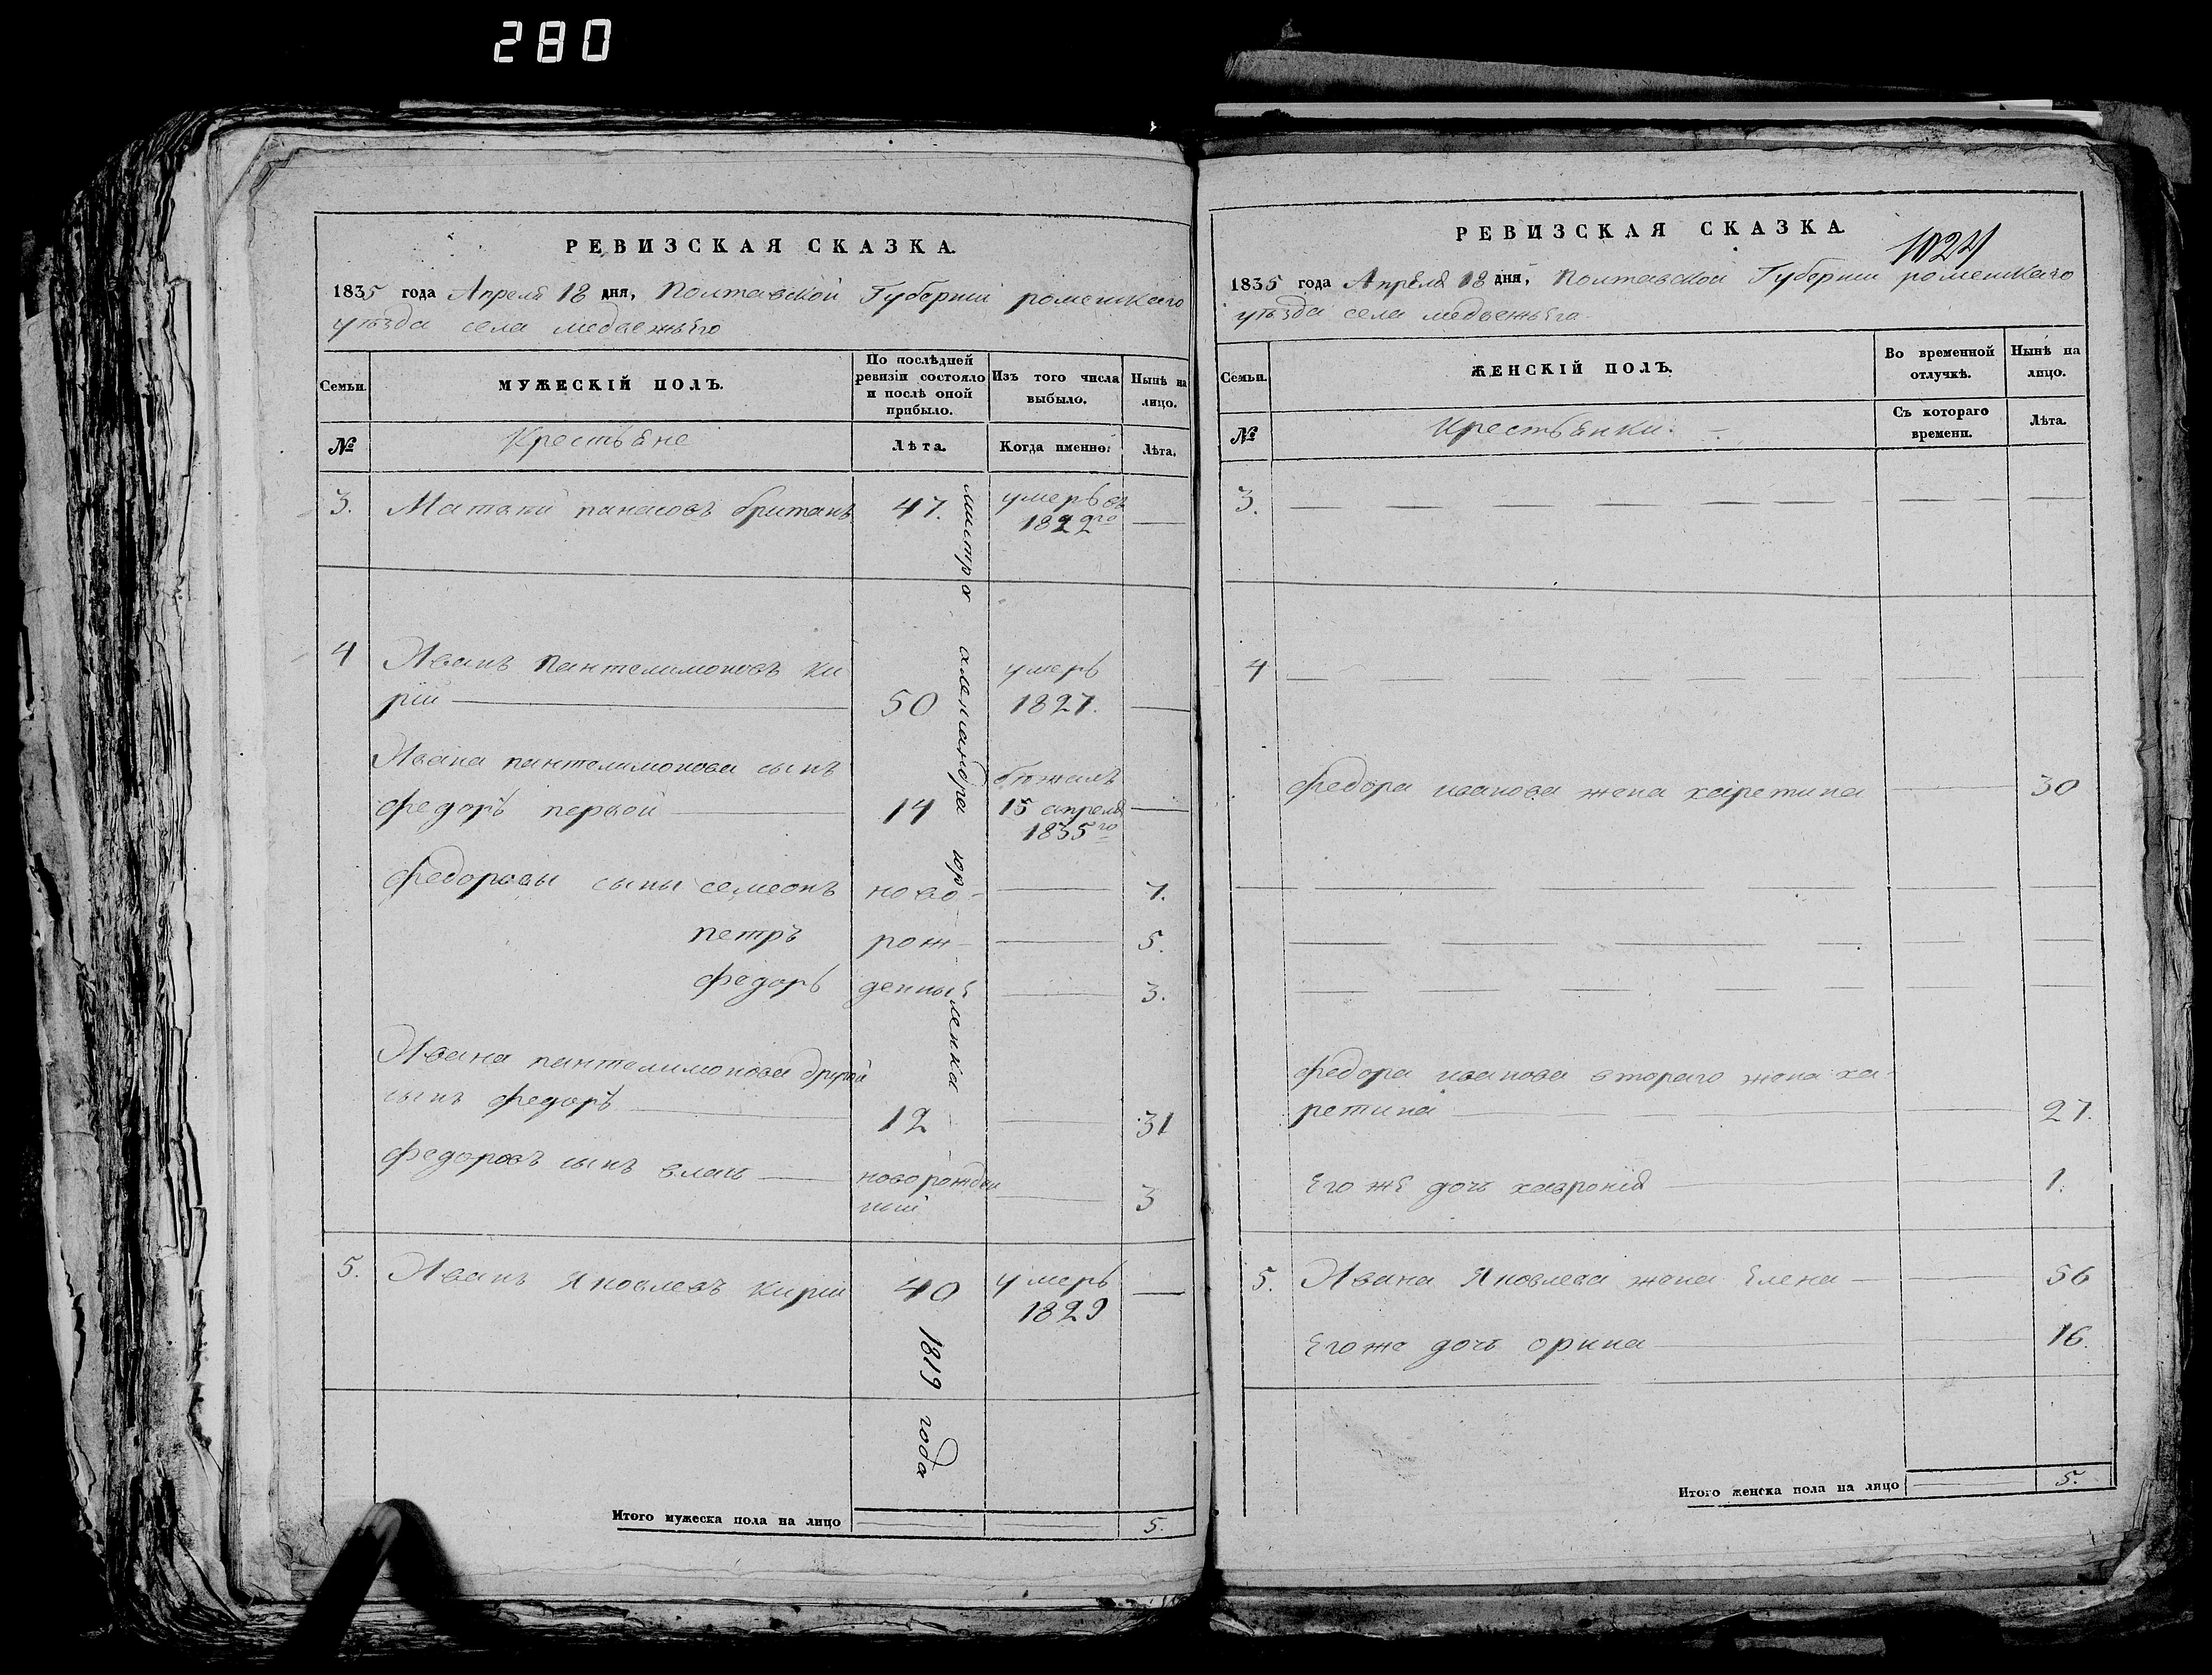 280
РЕВИЗСКАЯ СКАЗКА.
1835 года Апреля 18 дня, Полтавской Губерніи роменскаго
уѣзда села медвежьего
Семьи.
МУЖЕСКІЙ ПОЛЪ.
По послѣдней
ревизіи состояло
и послѣ оной
прибыло.
Изъ того числа
выбыло.
Нынѣ на
лицо.
№
Крестьяне
Лѣта.
Когда именно:
Лѣта.
3. панасовъ британъ 47. умеръ въ
1822го
4 Иванъ пантелимоновъ ки умеръ
рій 50 1827.
Ивана пантелимонова сынъ бѣжалъ
федоръ первой 14 15 апреля
1835го
федоровы сыны семеонъ ново- 7.
петръ рож- 5.
федоръ денные 3.
Ивана пантелимонова другой
сынъ федоръ 12 31
федоровъ сынъ влась новорожден
ный 3
5. Иванъ Яковлевъ кирій 40 умеръ
1829
александра юр
ченка
1819 года
Итого мужеска пола на лицо 5.
РЕВИЗСКАЯ СКАЗКА.
1024
1835 года Апреля 18 дня, Полтавской Губерніи роменскаго
уѣзда села медвежьего
Семьи.
ЖЕНСКІЙ ПОЛЪ.
Во временной
отлучкѣ.
Нынѣ на
лицо.
№
Крестьянки.
Съ котораго
времени.
Лѣта.
3.
4
федора иванова жена харетина 30
федора иванова втораго жена ха-
ретина 27.
Его же дочь хавронія 1.
5. Ивана Яковлева жена Елена 56
Его же дочь орина 16.
Итого женска пола на лицо 5.